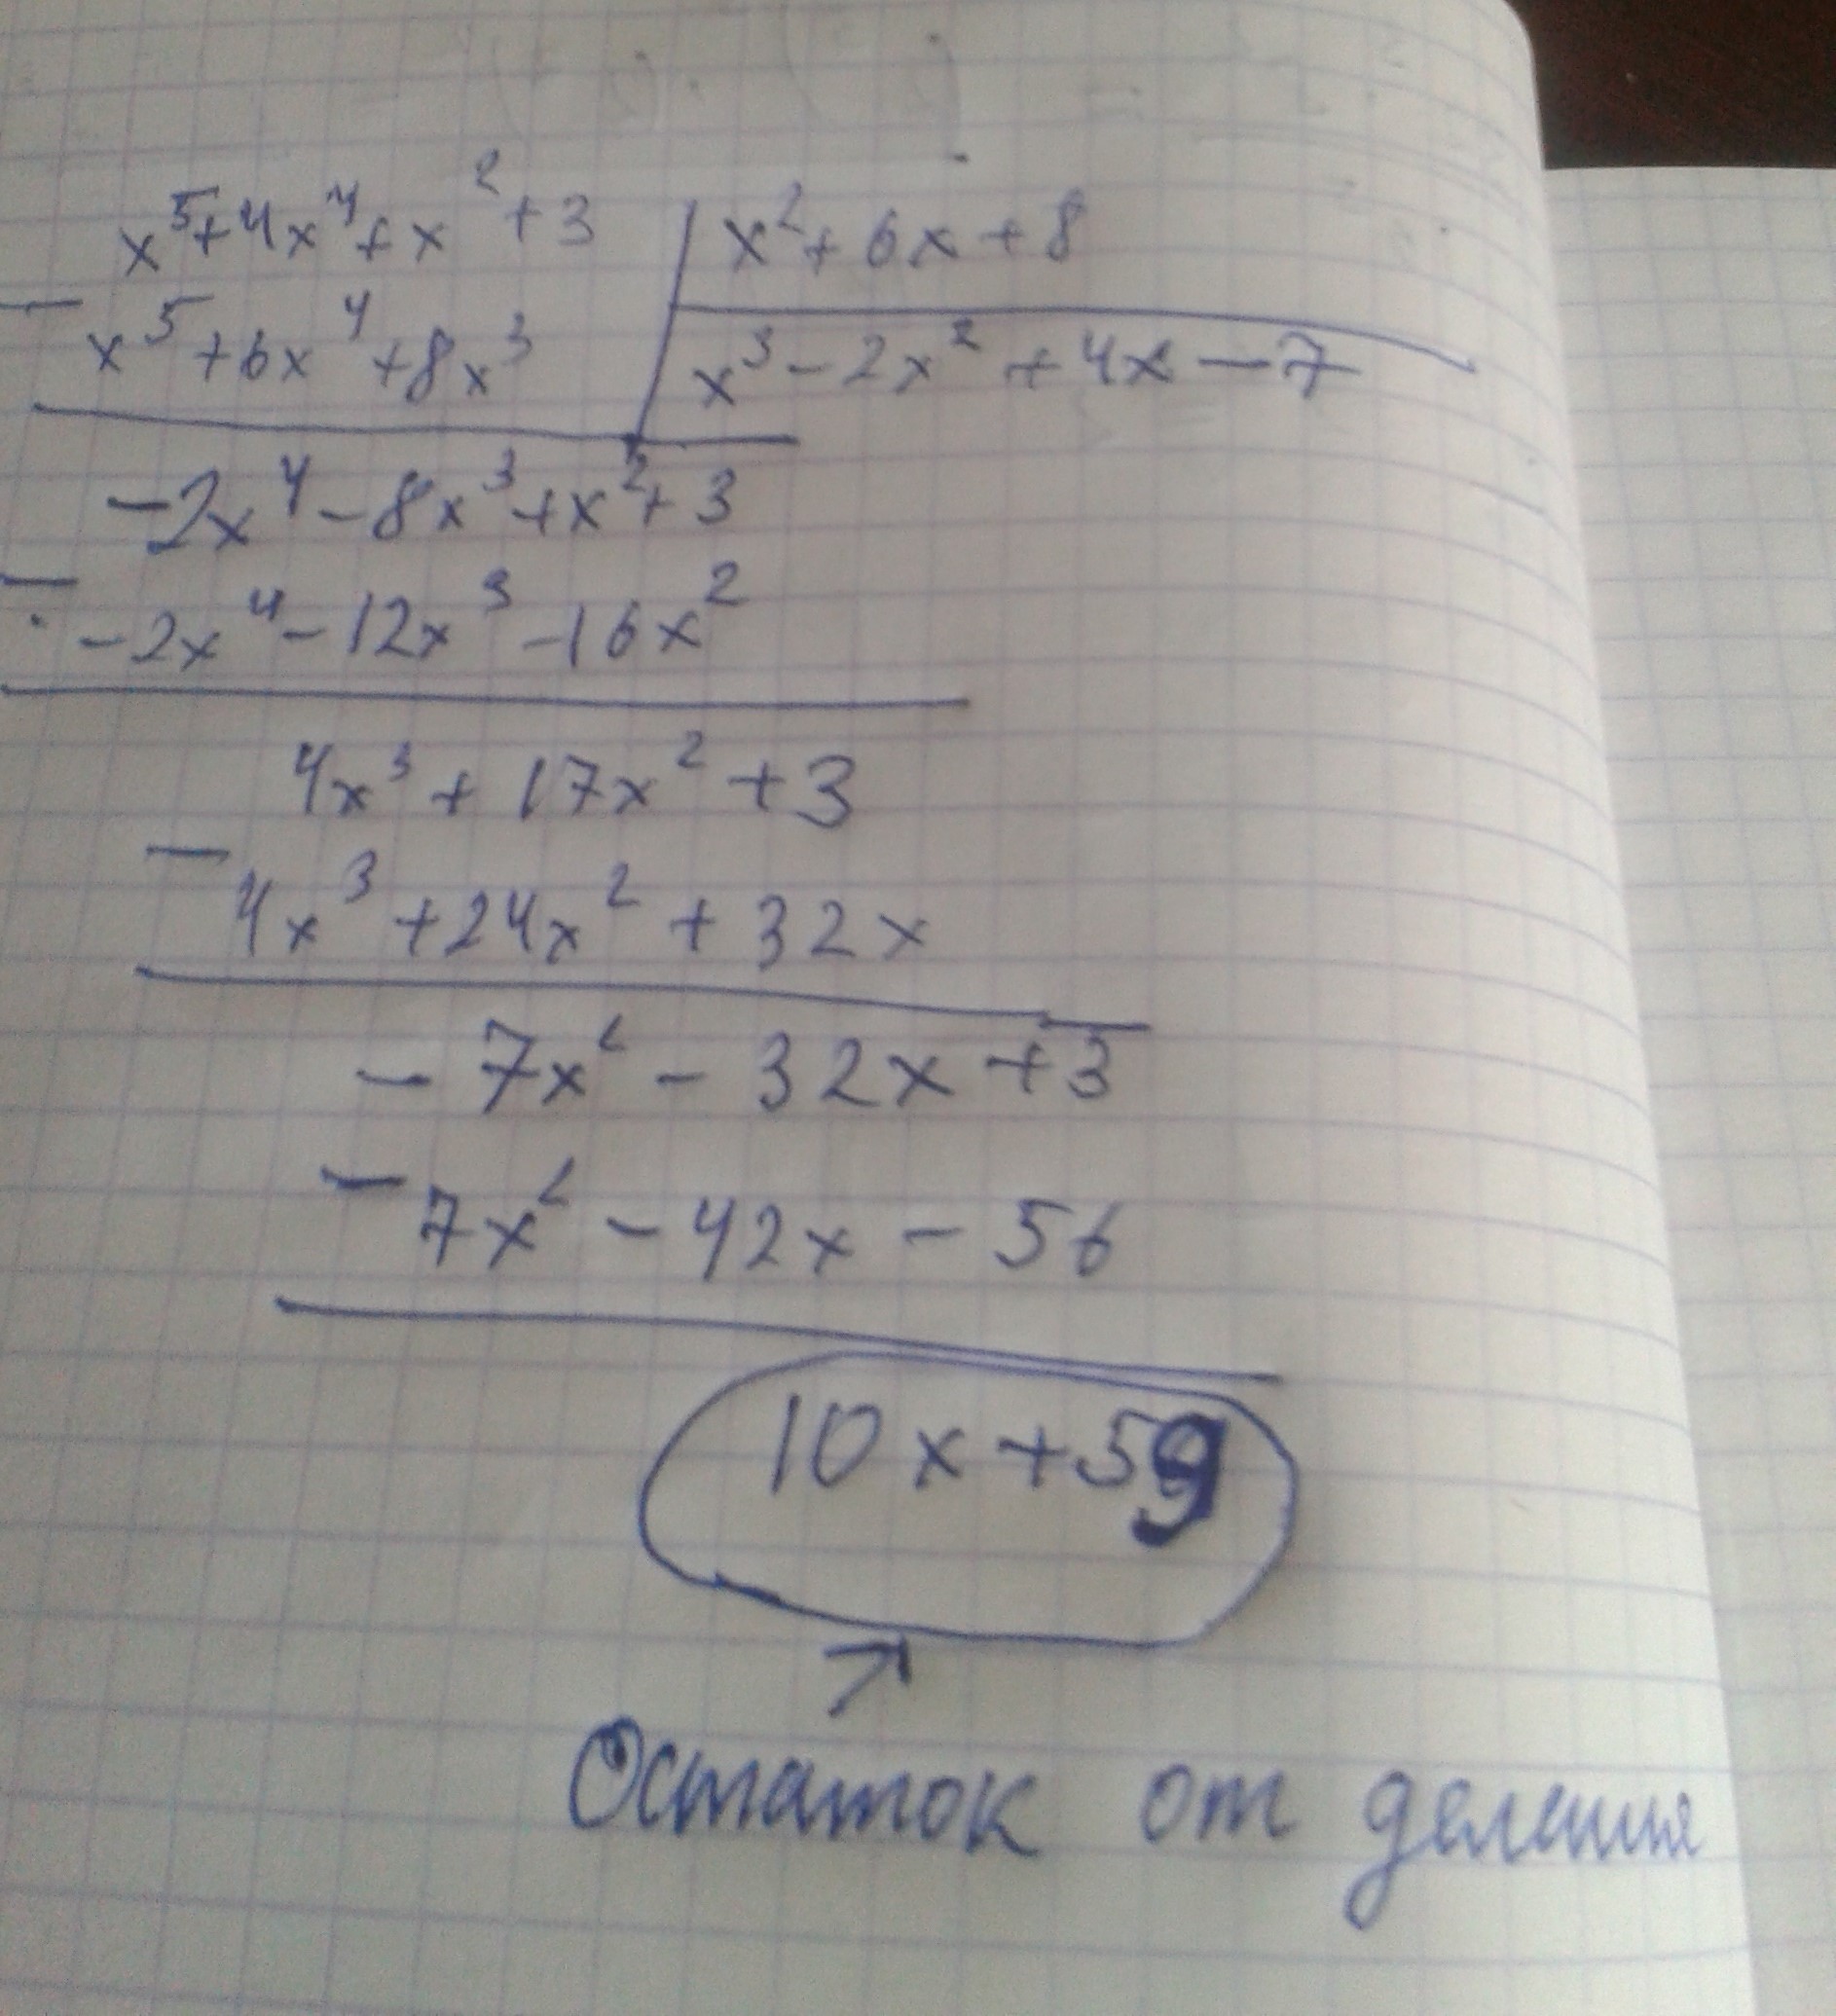 x⁵+4x⁴+x²+3 | x²+6x+8
− x⁵+6x⁴+8x³ | x³−2x²+4x−7
−2x⁴−8x³+x²+3
− −2x⁴−12x³−16x²
4x³+17x²+3
− 4x³+24x²+32x
−7x²−32x+3
−7x²−42x−56
10x+59
Остаток от деления